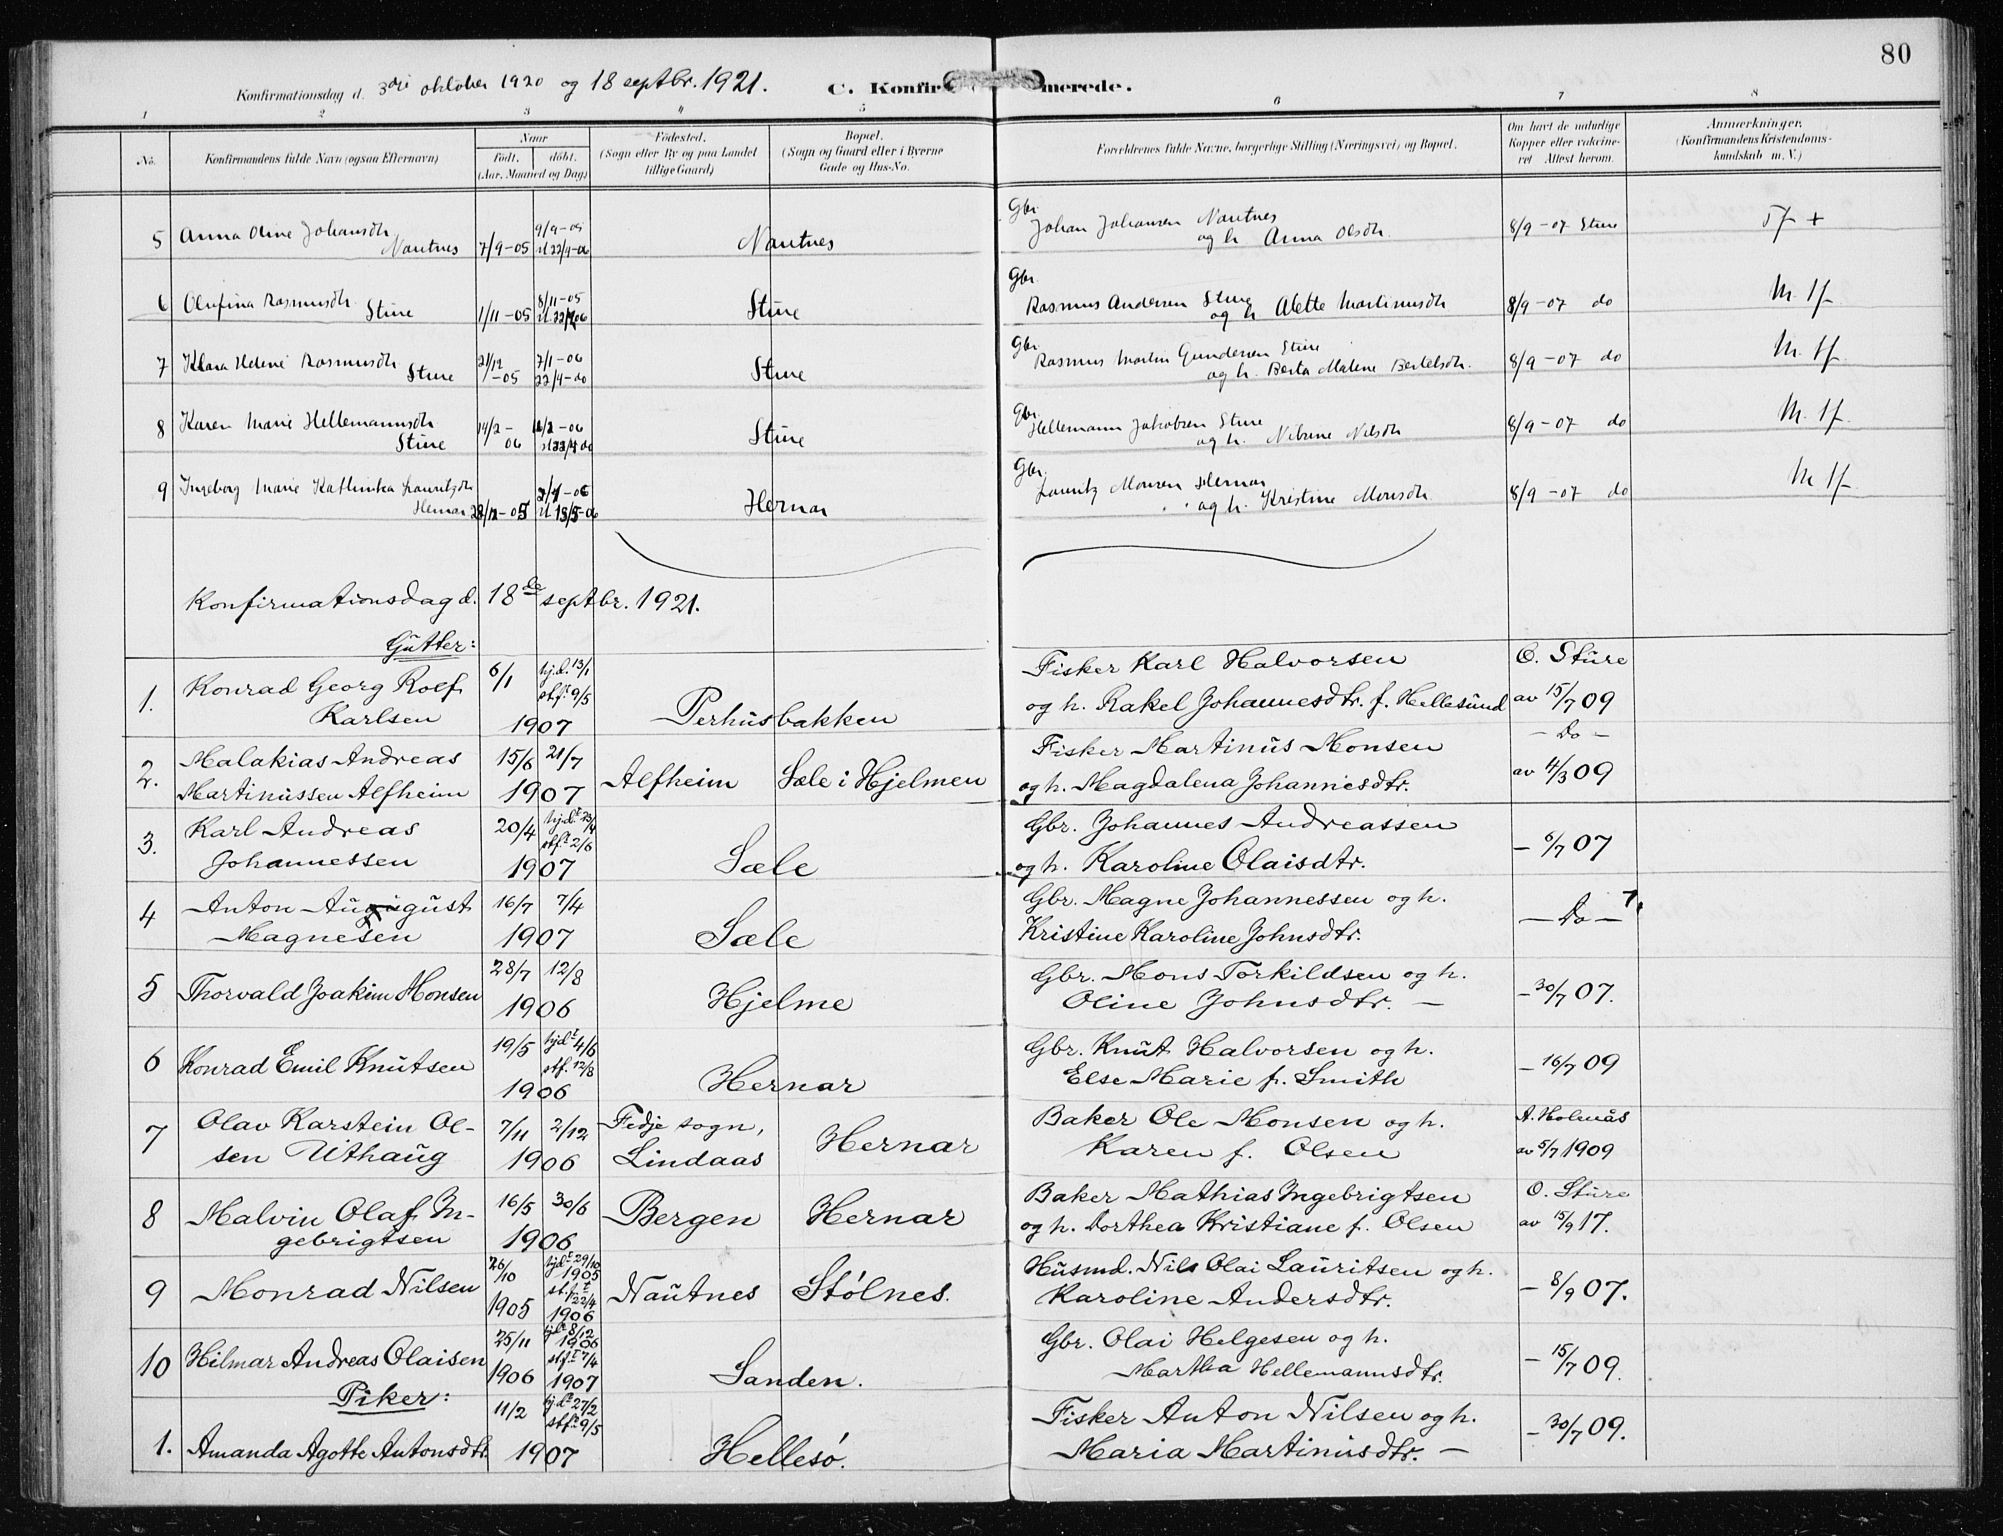 80
Konfirmationsdag d. 3die oktober 1920 og 18 septbr. 1921. C. Konfirmerede.
1 2 3 4 5 6 7 8
No. Konfirmandens fulde Navn (ogsaa Efternavn) Naar født. døbt. (Aar, Maaned og Dag) Fødested. (Sogn eller By og paa Landet tillige Gaard) Bopæl. (Sogn og Gaard eller i Byerne Gade og Hus-No. Forældrenes fulde Navne, borgerlige Stilling (Næringsvei) og Bopæl. Om havt de naturlige Kopper eller vakcineret Attest herom. Anmærkninger. (Konfirmandens Kristendomskundskab m. V.)
5 Anna Oline Johansdtr Nautnes 7/9-05 9/9-05 st 22/4-06 Nautnes Gbr. Johan Johansen Nautnes og h. Anna Olsdtr. 8/9-07 Sture
6 Olufina Rasmusdtr. Sture 1/11-05 8/11-05 Sture Gbr. Rasmus Andersen Sture og h Alette Martinusdtr 8/9-07 do M. 1/-
7 Klara Helene Rasmusdtr Sture 21/12-05 7/1-06 22/4-do Sture Gbr. Rasmus Martin Gundersen Sture og h. Berta Malene Bertelsdtr. 8/9-07 do M. 1/-
8 Karen Marie Hellemannsdtr Sture 14/2-06 st 22/4 06 Sture Gbr. Hellemann Jakobsen Sture og h. Nilsine Nilsdtr 8/9-07 do M. 1/-
9 Ingeborg Marie Kathinka Lauritzdtr Hernar 28/12-05 st 13/5-06 Hernar Gbr. Lauritz Monsen Hernar og h. Kristine Monsdtr. 8/9-07 do M 1/-
Konfirmationsdag d. 18de septbr. 1921.
Gutter:
1. Konrad Georg Rolf Karlsen 6/1 hjd. 13/1 stf. 9/5 1907 Perhusbakken Fisker Karl Halvorsen og h. Rakel Johannesdtr. f. Hellesund O. Sture av 15/7 09
2. Malakias Andreas Martinussen Alfheim 15/6 21/7 1907 Alfheim Sæle i Hjelmen Fisker Martinus Monsen og h. Magdalena Johannesdtr. - Do - av 4/3 09
3. Karl Andreas Johannessen 20/4 hjd. 23/4 stf. 2/6 1907 Sæle Gbr. Johannes Andreassen og h. Karoline Olaisdtr. - 6/7 07
4 Anton August Magnesen 16/7 7/4 1907 Sæle Gbr. Magne Johannessen og h. Kristine Karoline Johnsdtr. - Do -
5 Thorvald Joakim Monsen 28/7 12/8 1906 Hjelme Gbr. Mons Torkildsen og h. Oline Johnsdtr. - - 30/7 07.
6 Konrad Emil Knutsen 19/5 hjdt 4/6 stf. 12/8 1906 Hernar Gbr. Knut Halvorsen og h. Else Marie f. Smith - 16/7 09
7 Olav Karstein Olsen Uthaug 7/11 2/12 1906 Fedje sogn, Lindaas Hernar Baker Ole Monsen og h. Karen f. Olsen A. Holmås av 5/7 1909
8 Malvin Olaf Ingebrigtsen 16/5 30/6 1906 Bergen Hernar Baker Mathias Ingebrigtsen og h. Dorthea Kristiane f. Olsen O. Sture av 15/9 17.
9 Monrad Nilsen 26/10 1905 hjdt 29/10 1905 stft 22/4 1906 Nautnes Stølnes. Husmd. Nils Olai Lauritsen og h. Karoline Andersdtr. - 8/9 07.
10 Hilmar Andreas Olaisen 25/11 1906 hjdt 8/12 1906 stft 7/4 1907 Sanden. Gbr. Olai Helgesen og h. Martha Hellemannsdtr. - 15/7 09.
Piker:
1. Amanda Agotte Antonsdtr. 11/2 hjdt 27/2 stft 9/5 1907 Hellesø. Fisker Anton Nilsen og h. Maria Martinusdtr. - - 30/7 09.